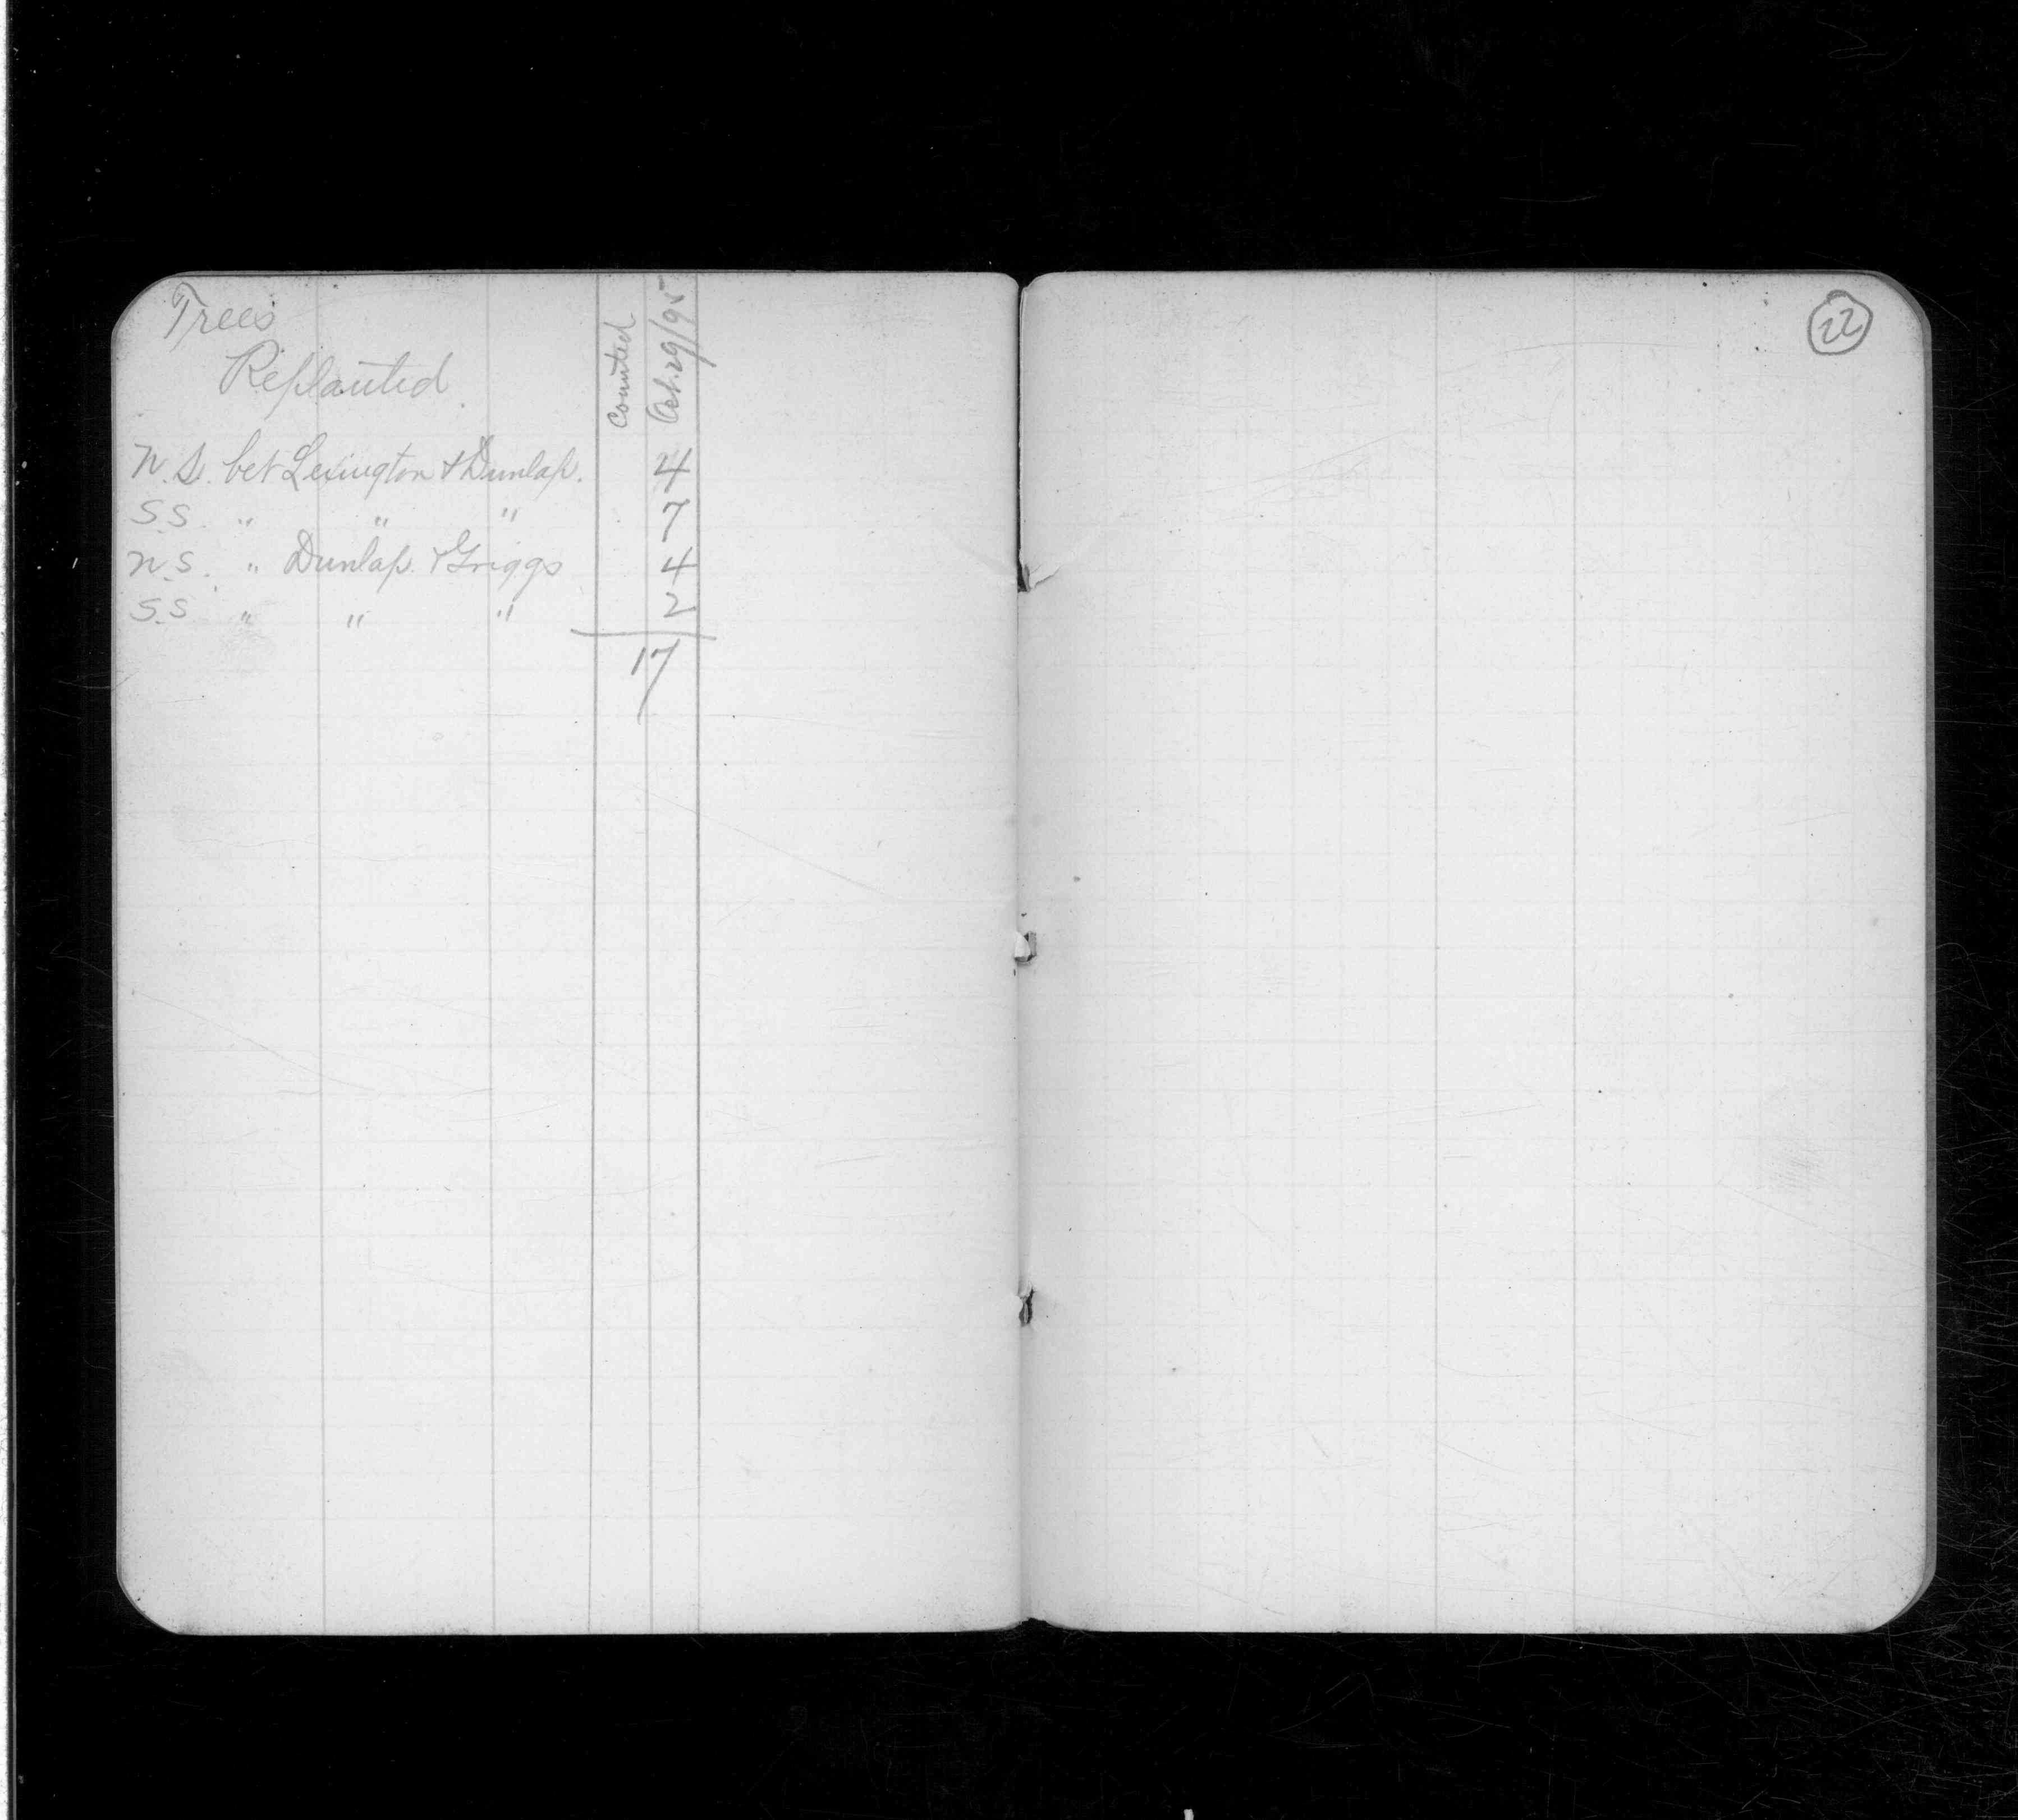 Trees
Replanted.
counted
Oct. 29/95
N.S. bet Lexington & Dunlap. 4
S.S. " " " 7
N.S. " Dunlap. & Griggs 4
S.S " " " 2
17
22